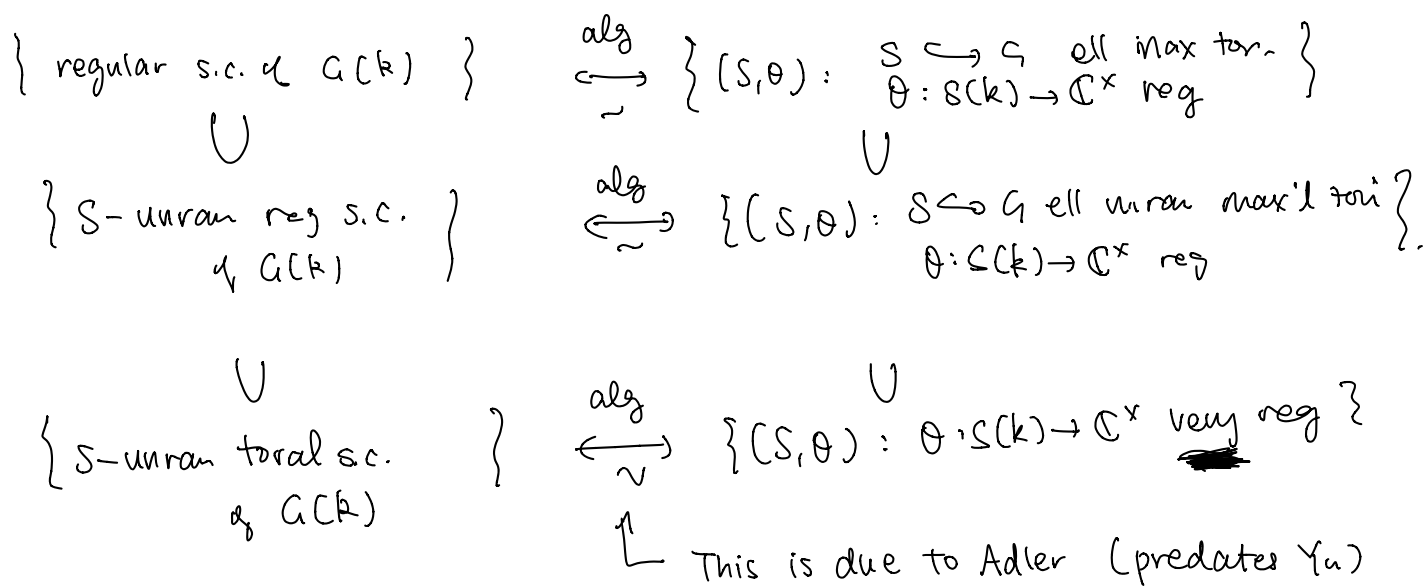 { regular s.c. of G(k) } alg ⟷ ∼ { (S,θ) : S ↪ G ell max tor.
θ : S(k) → ℂ^× reg }
∪ ∪
{ S-unram reg s.c. of G(k) } alg ⟷ ∼ { (S,θ) : S ↪ G ell unram max'l tori
θ : S(k) → ℂ^× reg }.
∪ ∪
{ S-unram toral s.c. of G(k) } alg ⟷ ∼ { (S,θ) : θ : S(k) → ℂ^× very reg }
This is due to Adler (predates Yu)